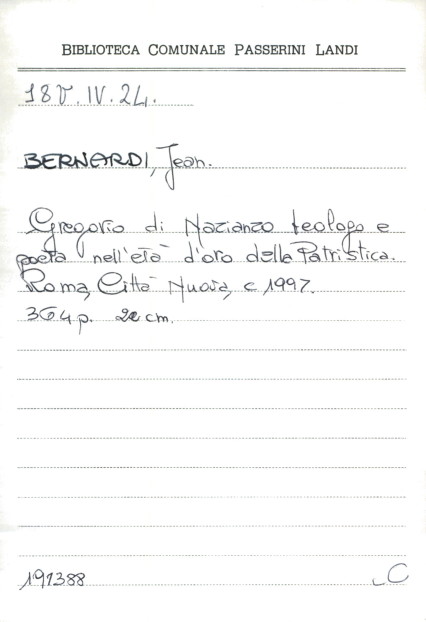 BIBLIOTECA COMUNALE PASSERINI LANDI
18V.IV.24.
BERNARDI, Jean.
Gregorio di Nazianzo teologo e
poeta nell'età d'oro della Patristica.
Roma, Città Nuova, c 1997.
364 p. cm.
191388
C